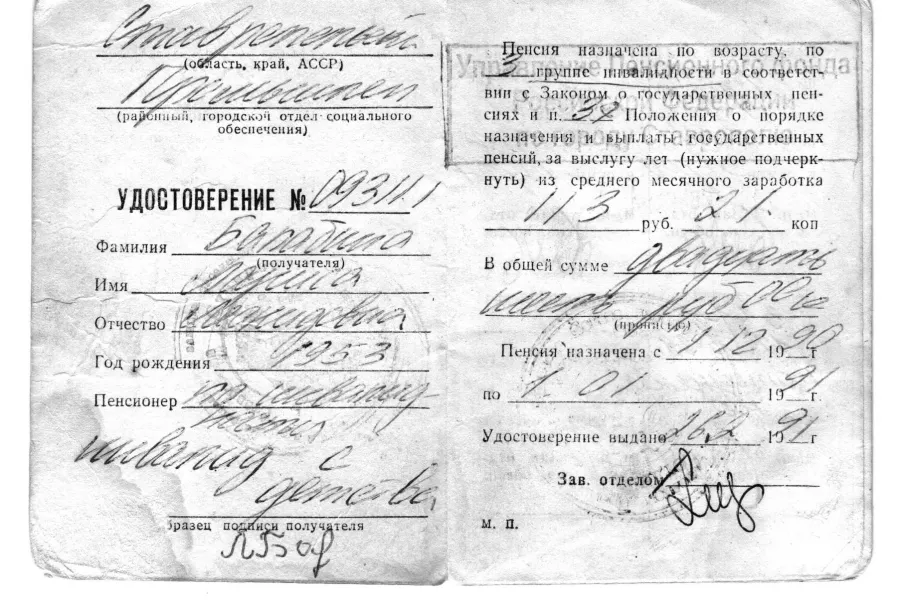 Ставропольский
(область, край, АССР)
Промышлен
(районный, городской отдел социального
обеспечения)
УДОСТОВЕРЕНИЕ № 093111
Фамилия
(получателя)
Имя
Отчество
Год рождения 1953
Пенсионер по инвалид
ности
инвалид с
детства
бразец подписи получателя
Пенсия назначена по возрасту, по
3 группе инвалидности в соответст-
вии с Законом о государственных пен-
сиях и п. Положения о порядке
назначения и выплаты государственных
пенсий, за выслугу лет (нужное подчерк-
нуть) из среднего месячного заработка
113 руб. 21 коп
В общей сумме двадцать
шесть руб 00 к
(прописью)
Пенсия назначена с 1 12 1990 г
по 1. 01 1991 г.
Удостоверение выдано 26.2 1991 г
Зав. отделом
м. п.
Управление Пенсионного фонда
Российской Федерации
по городу Ставрополю